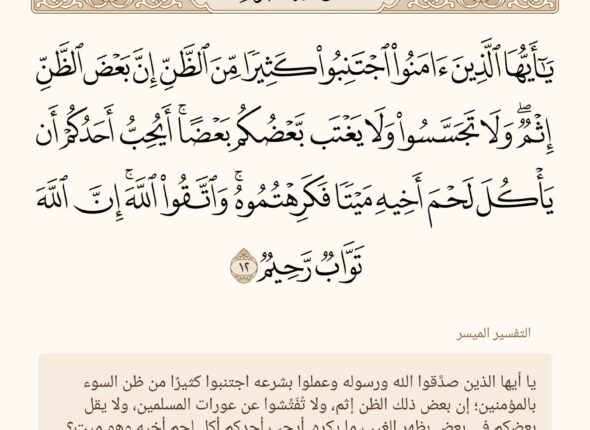 يَـٰٓأَيُّهَا ٱلَّذِينَ ءَامَنُوا۟ ٱجْتَنِبُوا۟ كَثِيرًا مِّنَ ٱلظَّنِّ إِنَّ بَعْضَ ٱلظَّنِّ
إِثْمٌ ۖ وَلَا تَجَسَّسُوا۟ وَلَا يَغْتَب بَّعْضُكُم بَعْضًا ۚ أَيُحِبُّ أَحَدُكُمْ أَن
يَأْكُلَ لَحْمَ أَخِيهِ مَيْتًا فَكَرِهْتُمُوهُ ۚ وَٱتَّقُوا۟ ٱللَّهَ ۚ إِنَّ ٱللَّهَ
تَوَّابٌ رَّحِيمٌ ١٢
التفسير الميسر
يا أيها الذين صدَّقوا الله ورسوله وعملوا بشرعه اجتنبوا كثيرًا من ظن السوء
بالمؤمنين؛ إن بعض ذلك الظن إثم، ولا تُفَتِّشوا عن عورات المسلمين، ولا يقل
بعضكم في بعض بظهر الغيب ما يكره. أيحب أحدكم أكل لحم أخيه وهو ميت؟